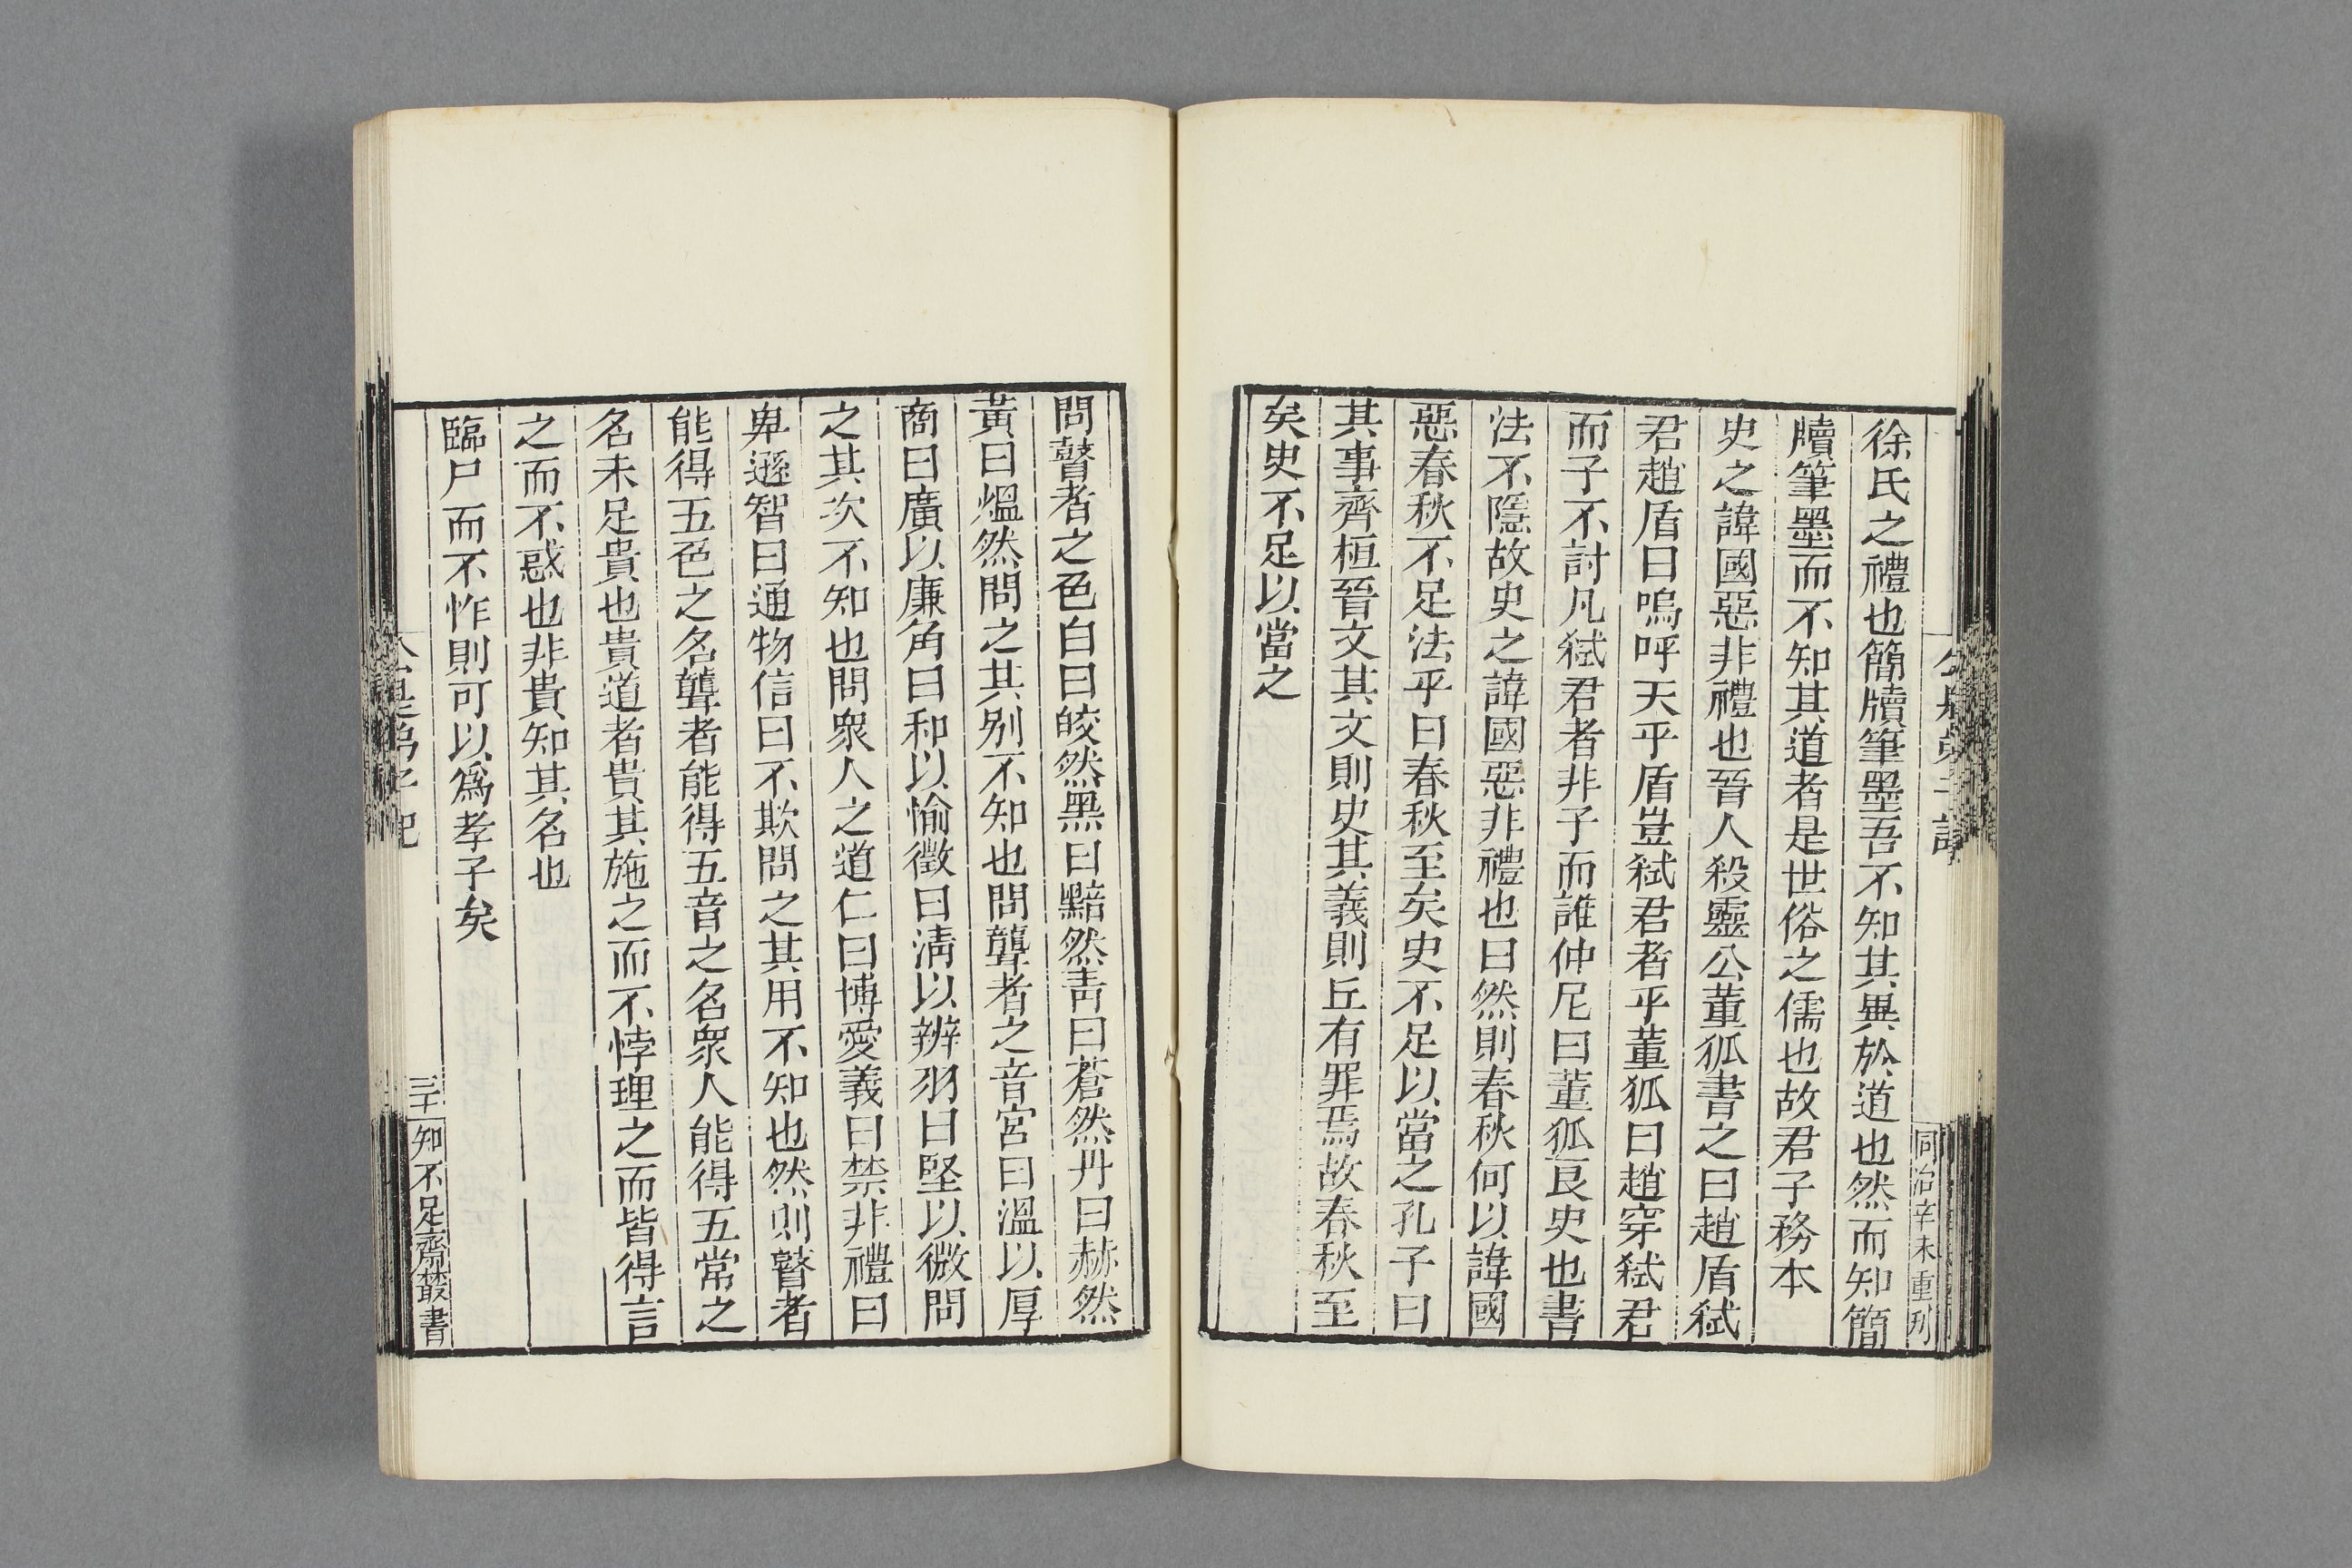 徐氏之禮也簡牘筆墨吾不知其異於道也然而知簡
牘筆墨而不知其道者是世俗之儒也故君子務本
史之諱國惡非禮也晉人殺靈公董狐書之曰趙盾弑
君趙盾曰嗚呼天乎盾豈弑君者乎董狐曰趙穿弑君
而子不討凡弑君者非子而誰仲尼曰董狐良史也書
法不隱故史之諱國惡非禮也曰然則春秋何以諱國
惡春秋不足法乎曰春秋至矣史不足以當之孔子曰
其事齊桓晉文其文則史其義則丘有罪焉故春秋至
矣史不足以當之
同治辛未重刋
問瞽者之色白曰皎然黑曰黯然靑曰蒼然丹曰赫然
黃曰熅然問之其别不知也問聾者之音宮曰溫以厚
商曰廣以廉角曰和以愉徵曰淸以辨羽曰堅以微問
之其次不知也問衆人之道仁曰博愛義曰禁非禮曰
卑遜智曰通物信曰不欺問之其用不知也然則瞽者
能得五色之名聾者能得五音之名衆人能得五常之
名未足貴也貴道者貴其施之而不悖理之而皆得言
之而不惑也非貴知其名也
臨尸而不怍則可以爲孝子矣
三十
知不足齋叢書